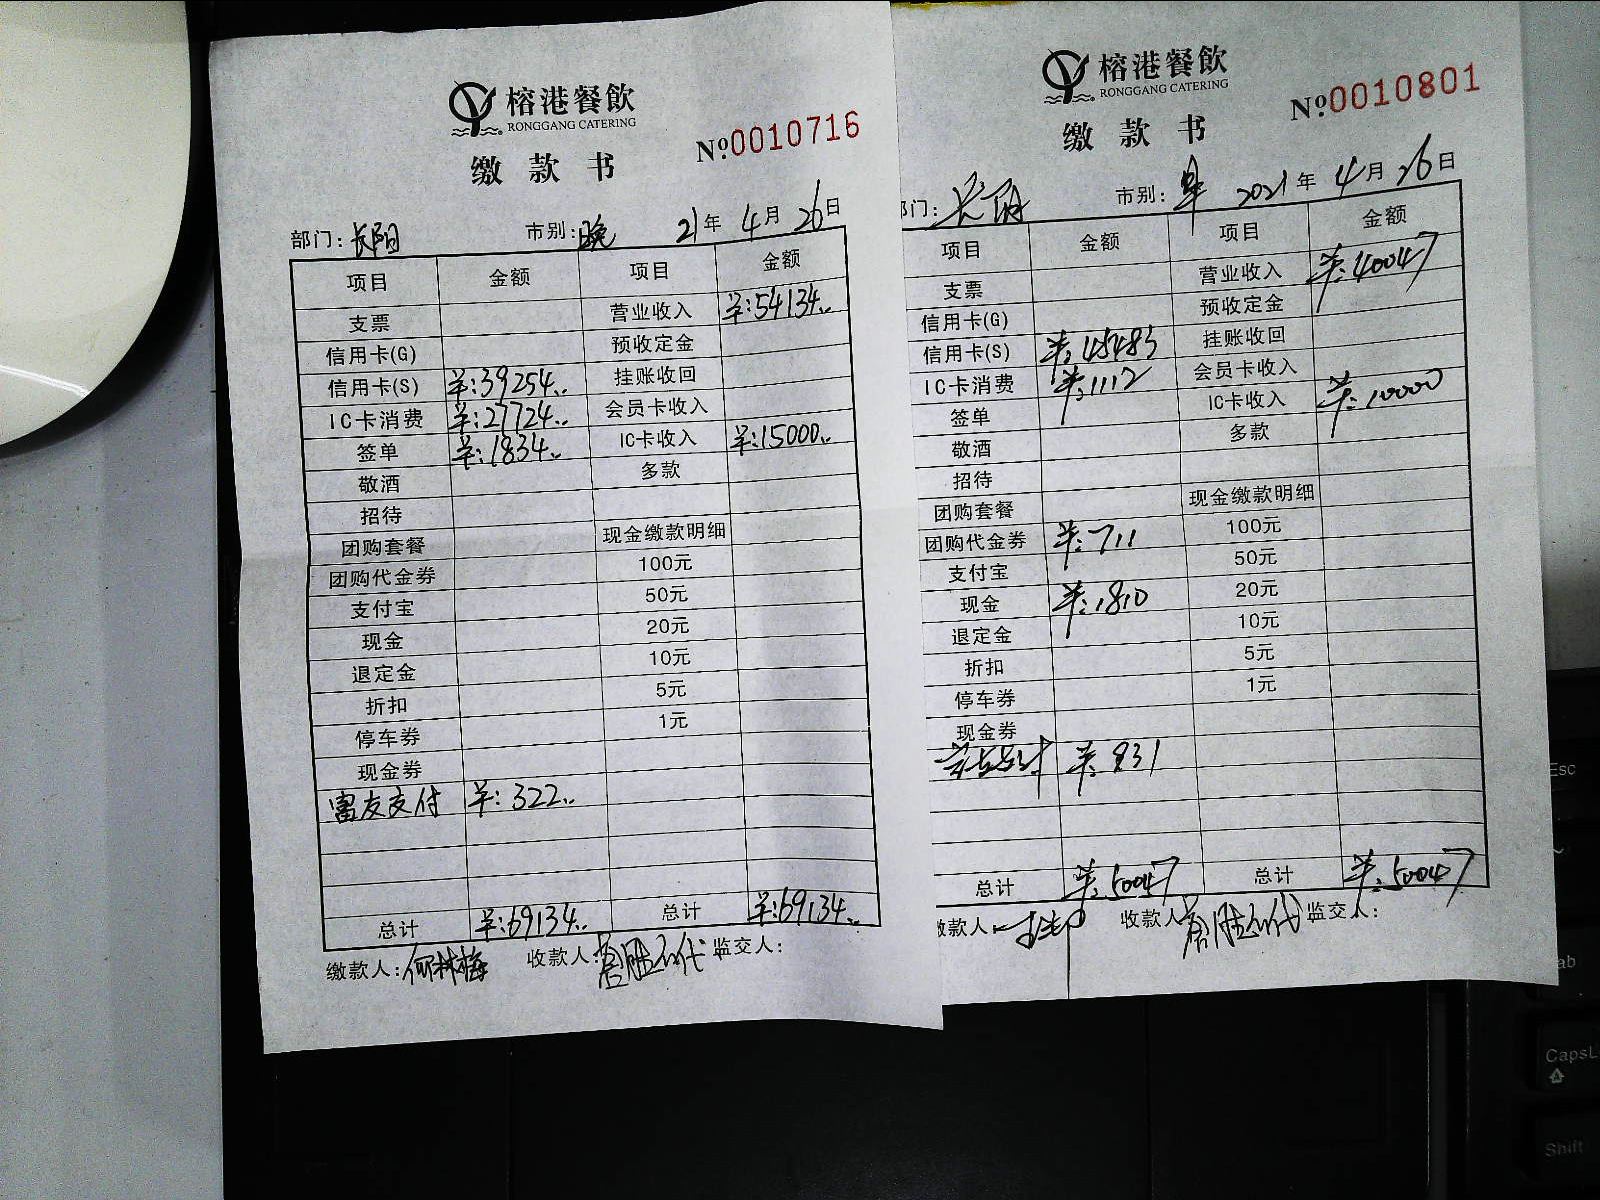 榕港餐飲
RONGGANG CATERING
缴款书
№0010716
部门：长阳 市别：晚 21年4月26日
项目 金额 项目 金额
支票 营业收入 羊:54134..
信用卡(G) 预收定金
信用卡(S) 羊:39254.. 挂账收回
IC卡消费 羊:27724.. 会员卡收入
签单 羊:1834.. IC卡收入 羊:15000..
敬酒 多款
招待
团购套餐 现金缴款明细
团购代金券 100元
支付宝 50元
现金 20元
退定金 10元
折扣 5元
停车券 1元
现金券
富友支付 羊:322..
总计 羊:69134.. 总计 羊:69134..
缴款人:何林梅 收款人: 监交人:
榕港餐飲
RONGGANG CATERING
缴款书
№0010801
部门: 长阳 市别: 早 2021年4月26日
项目 金额 项目 金额
支票 营业收入 羊:40047
信用卡(G) 预收定金
信用卡(S) 羊:45483 挂账收回
IC卡消费 羊:1112 会员卡收入
签单 IC卡收入 羊:10000
敬酒 多款
招待
团购套餐 现金缴款明细
团购代金券 羊:711 100元
支付宝 50元
现金 羊:1810 20元
退定金 10元
折扣 5元
停车券 1元
现金券
羊:931
总计 羊:50047 总计 羊:50047
缴款人 收款人 监交人:
Esc
ab
CapsL
Shift